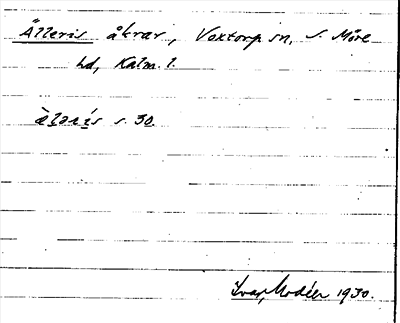 Ålleris åkrar, Voxtorp sn, S. Möre
hd, Kalm. l.
s. 30.
Ivar Modéer 1930.